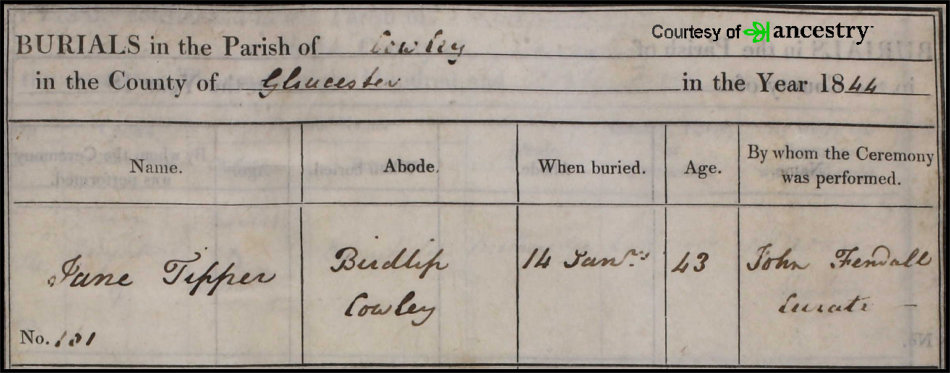 Courtesy of ancestry
BURIALS in the Parish of Cowley
in the County of Gloucester in the Year 1844
Name. Abode. When buried. Age. By whom the Ceremony
was performed.
Jane Tipper Birdlip 14 Janry 43 John Fendall
Cowley Curate
No. 181